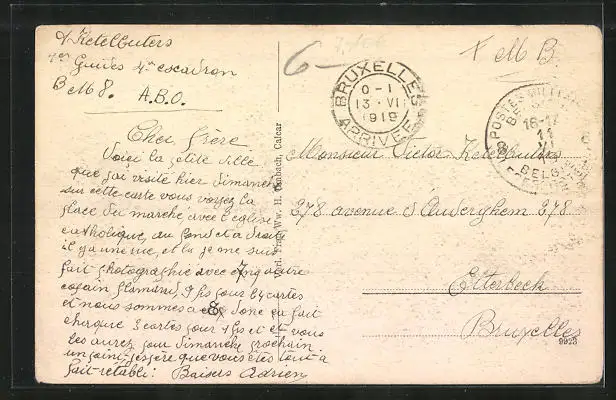 A Ketelbuters
1er Guides 4me escadron
B M 8. A.B.O.
Cher frère
Voiçi la petite ville
que jai visité hier dimanche
sur cette carte vous voyez la
place du marché avec l'eglise
catholique, au fond et a droite
il y a une rue, et la je me suis
fait photographie avec 7 autre
copain flamand, 9 frs pour 24 cartes
et nous sommes a 8 donc ça fait
chaque 3 cartes pour 1 frs et vous
les aurez pour dimanche prochain
un joint j'espère que vous êtes tout a
fait retabli: Baisers Adrien
Verl. Frau Ww. H. Calcar
6-
F M B
BRUXELLES
0-1
13-VI
1919
ARRIVEE
POSTES MILITAIRES
16-17
11
VI
BELGIE
Monsieur Victor Ketelbuters
278 avenue d'Auderghem 278
Etterbeck
Bruxelles
9923